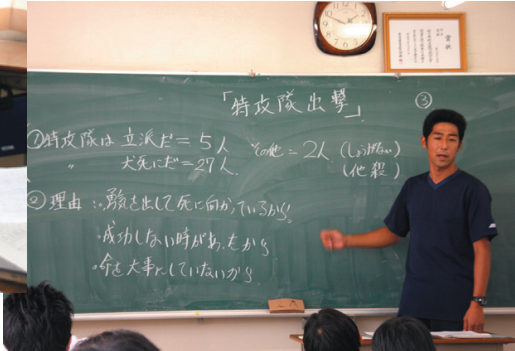 賞状
「特攻隊出撃」
③
①特攻隊は 立派だ=5人
〃 犬死にだ=27人
その他=2人(しょうがない)
(他殺)
②理由:・勇気を出して死に向かっているから!
・成功しない時があったから
・命を大事にしていないから